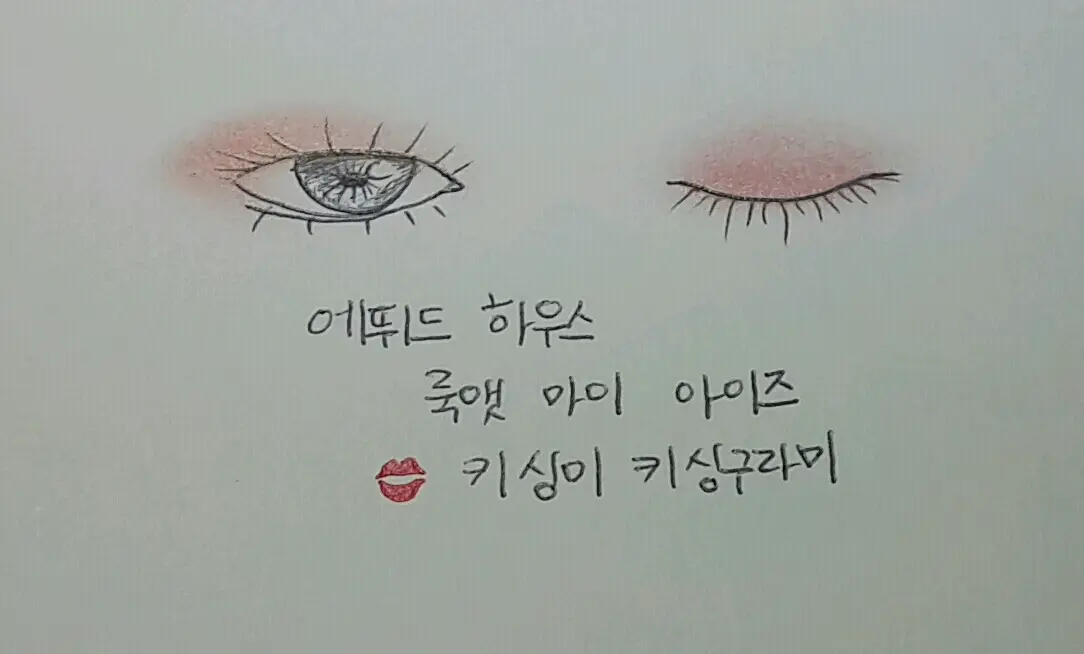 에뛰드 하우스
룩앳 마이 아이즈
키싱미 키싱구라미